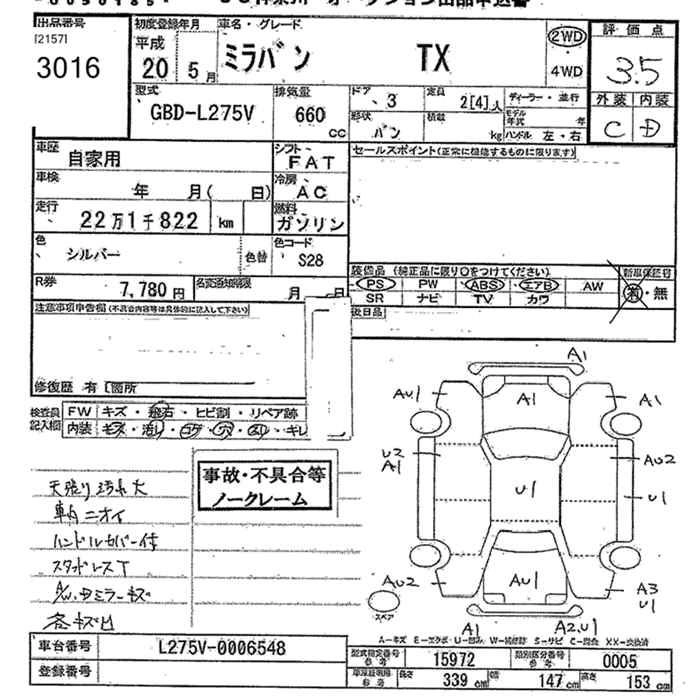 出品番号
[2157]
3016
初度登録年月
平成
20 5月
車名・グレード
ミラバン TX
2WD
4WD
評価点
3.5
外装 内装
C D
型式
GBD-L275V
排気量
660
cc
ドア
3
定員
2[4]人
ディーラー・並行
形状
バン
積載
kg
モデル年式 年
ハンドル 左・右
車歴
自家用
シフト
FAT
セールスポイント(正常に機能するものに限ります)
車検
年 月( 日)
冷房
AC
走行
22万1千822 km
燃料
ガソリン
色
シルバー
色替
色コード
S28
R券
7,780円
名変通知期限
月
装備品 (純正品に限り○をつけてください)
PS PW ABS エアB AW
SR ナビ TV カワ
新車保証書
有・無
後日品
注意事項申告欄(不具合内容等は具体的に記入して下さい)
修復歴 有 [箇所
検査員記入欄
FW キズ・飛石・ヒビ割・リペア跡
内装
事故・不具合等
ノークレーム
天張り汚れ大
車内ニオイ
ハンドルカバー付
スタッドレスT
各キズ凹
A1
AU1
A1
A1
U2
A1
AU2
U1
U1
AU2
AU1
A3
U1
スペア
A1
A2,U1
A-キズ E-エクボ U-凹み W-補修跡 S-サビ C-腐食 XX-交換済
車台番号
L275V-0006548
登録番号
型式指定番号
参考
15972
類別区分番号
参考
0005
車庫証明用
参考
長さ
339 cm
幅
147 cm
高さ
153 cm